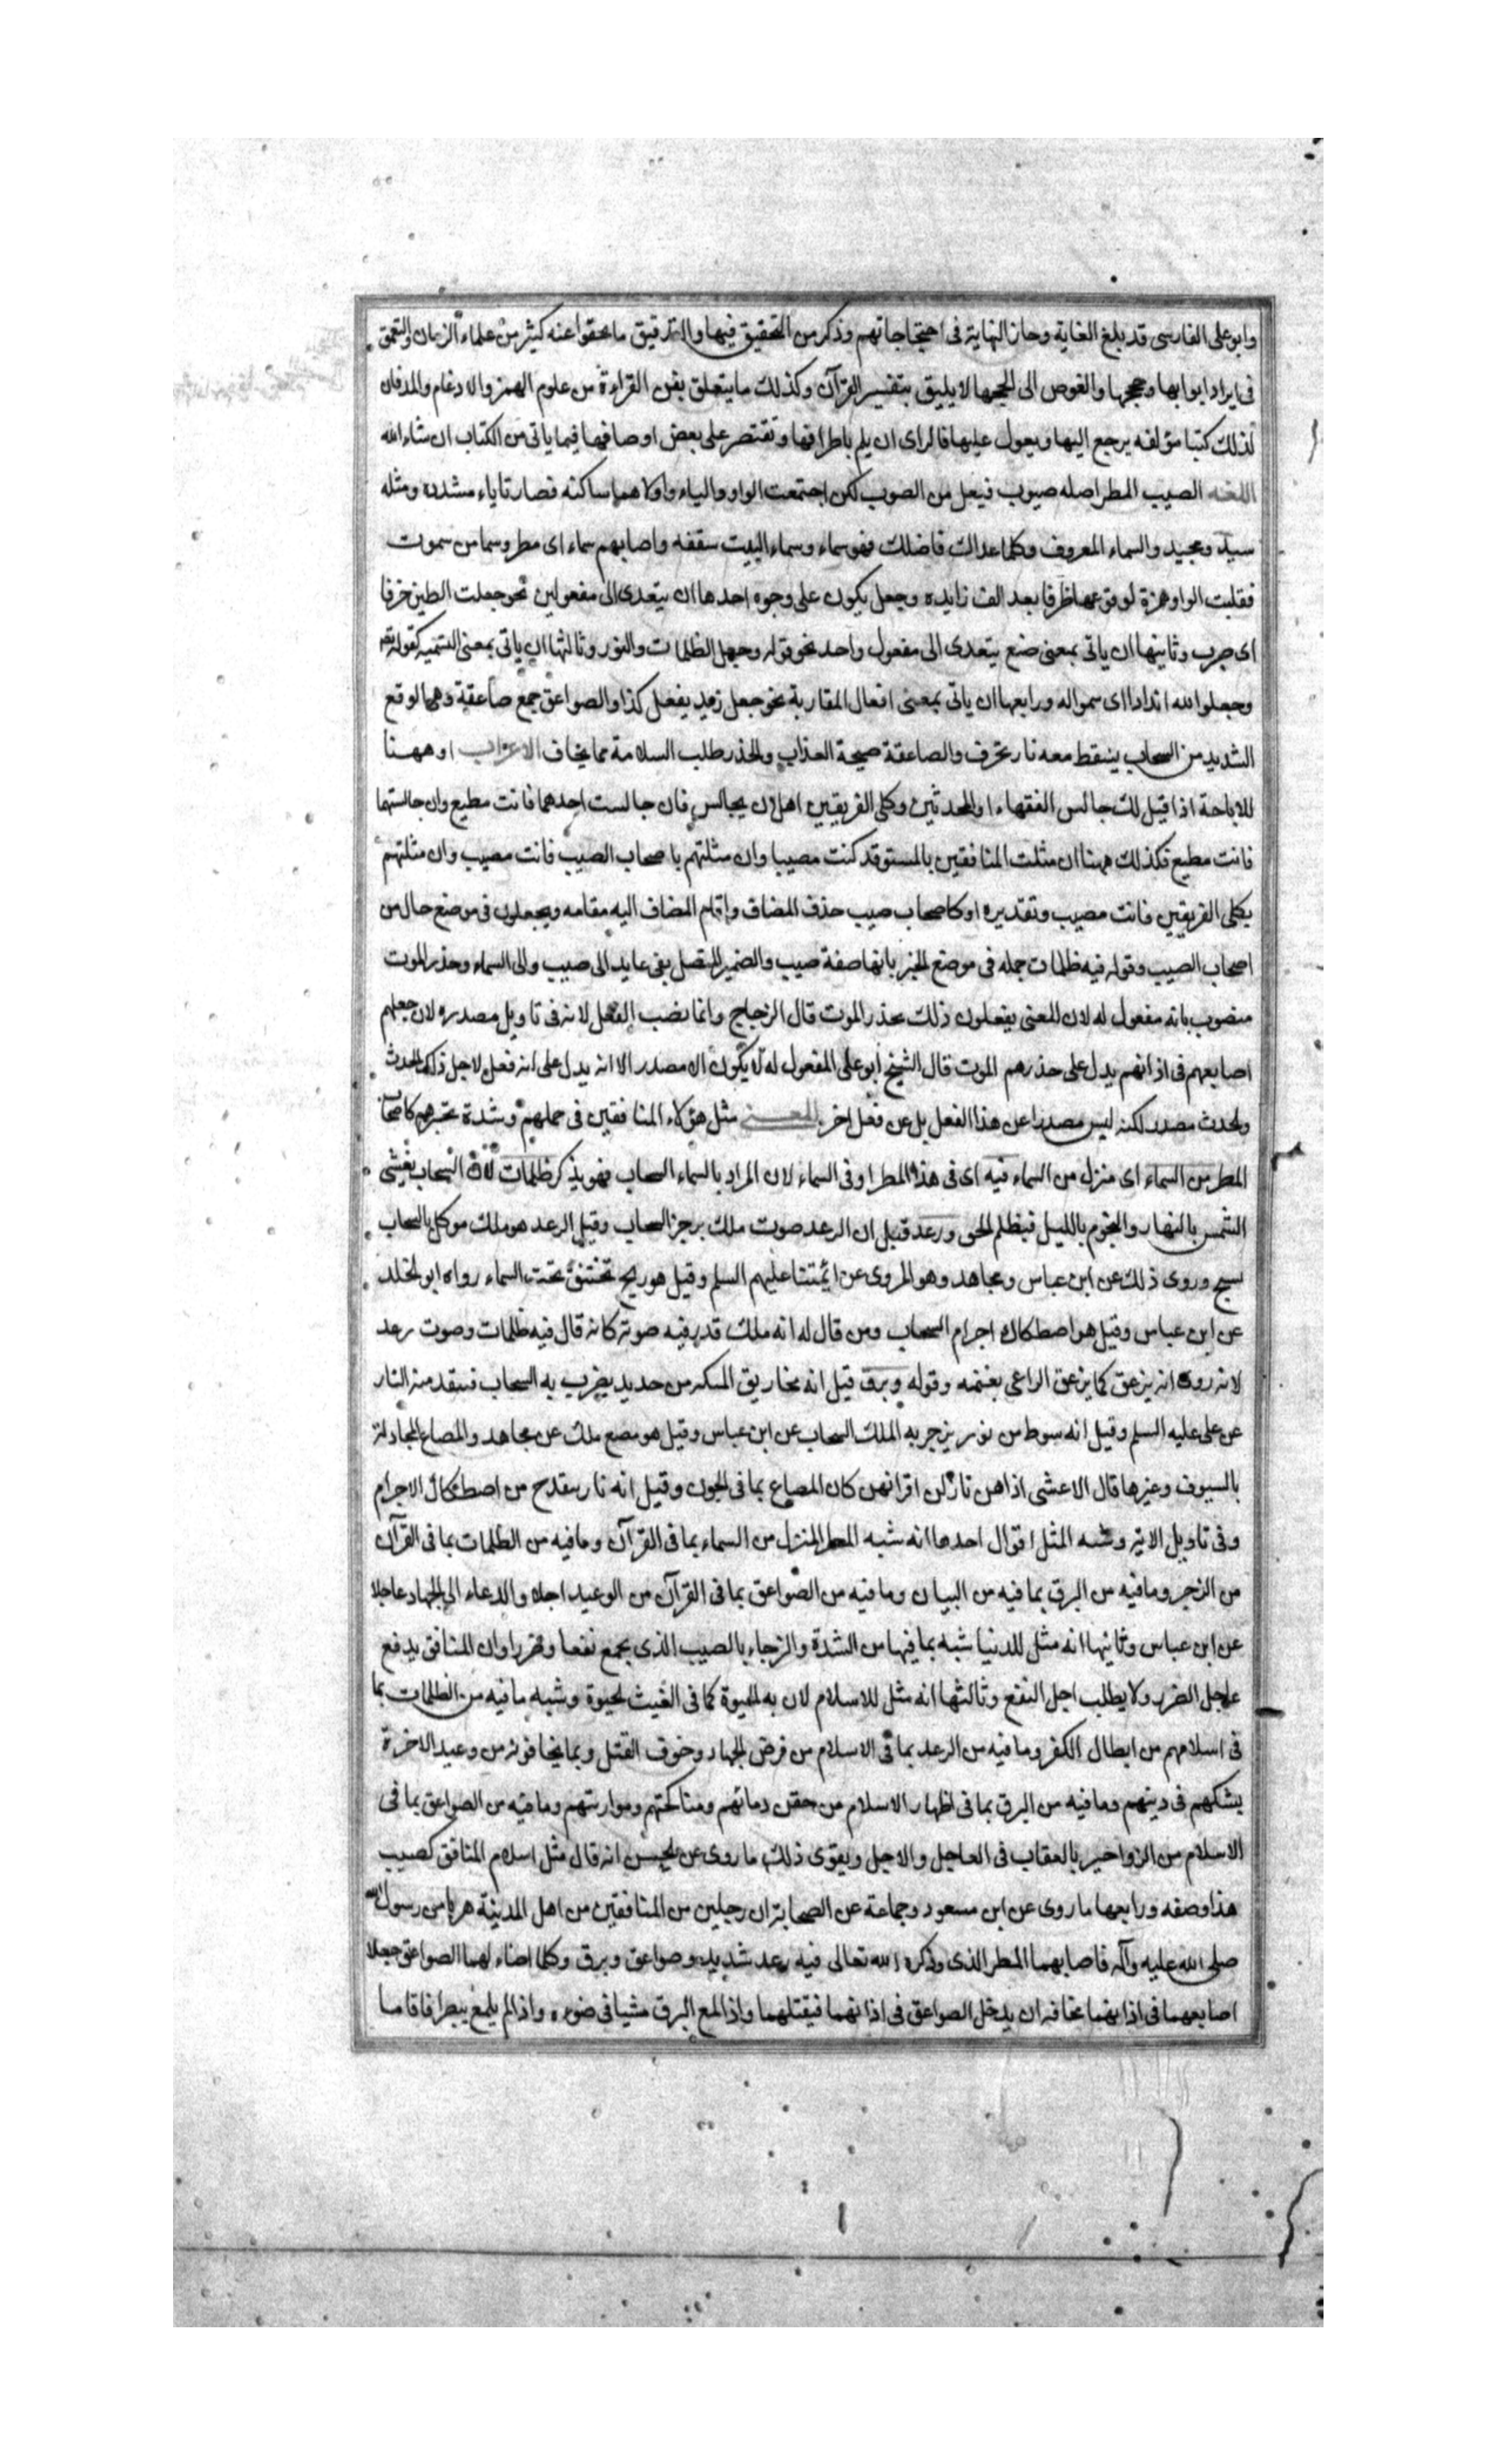 وابو على الفارسى قد بلغ الغاية وحاز النهاية فى احتجاجاتهم وذكر من التحقيق فيها والتدقيق ما يحقوا عنه كثير من علماء الزمان والتعمق
فى ايراد ابوابها وحججها والغوص الى لججها لا يليق بتفسير القرآن وكذلك ما يتعلق بفن القراءة من علوم الهمز والادغام والمد فان
لذلك كتبا مؤلفه يرجع اليها ويعول عليها فالراى ان يلم باطرافها ونقتصر على بعض اوصافها فيما ياتى من الكتاب ان شاء الله
اللغه الصيب المطر اصله صيوب فيعل من الصوب لكن اجتمعت الواو والياء واولاهما ساكنه فصارتا ياء مشدده ومثله
سيد وجيد والسماء المعروف وكلما علاك فاضلك فهو سماء وسماء البيت سقفه واصابهم سماء اى مطر وسما من سموت
فقلبت الواو همزة لوقوعها ظرفا بعد الف زايده وجعل يكون على وجوه احدها ان يتعدى الى مفعولين نحو جعلت الطين خزفا
اى صرب وثانيها ان ياتى بمعنى صنع يتعدى الى مفعول واحد نحو قوله وجعل الظلمات والنور وثالثها ان ياتى بمعنى التسميه كقوله تع
وجعلوا لله اندادا اى سمواله ورابعها ان ياتى بمعنى افعال المقاربة نحو جعل زيد يفعل كذا والصواعق جمع صاعقة وهى الوقع
الشديد من السحاب يسقط معه نار تحرق والصاعقة صيحة العذاب والحذر طلب السلامة مما يخاف الاعراب او ههنا
للاباحة اذا قيل لك جالس الفقهاء او المحدثين وكلى الفريقين اهل ان يجالس فان جالست احدهما فانت مطيع وان جالستهما
فانت مطيع فكذلك ههنا ان مثلت المنافقين بالمستوقد كنت مصيبا وان مثلتهم باصحاب الصيب فانت مصيب وان مثلتهم
بكلى الفريقين فانت مصيب وتقديره او كاصحاب صيب حذف المضاف واقام المضاف اليه مقامه ويجعلون فى موضع حال من
اصحاب الصيب وقوله فيه ظلمات جمله فى موضع الجر بانها صفة صيب والضمير المتصل بفى عايد الى صيب والى السماء وحذر الموت
منصوب بانه مفعول له لان المعنى يفعلون ذلك بحذر الموت قال الزجاج وانما نصب الفعل لانه فى تاويل مصدره لان جعلهم
اصابعهم فى اذانهم يدل على حذرهم الموت قال الشيخ ابو على المفعول له لا يكون الا مصدر الا انه يدل على انه فعل لاجل ذلك الحدث
والحدث مصدر لكنه ليس مصدرا عن هذا الفعل بل عن فعل اخر المعنى مثل هؤلاء المنافقين فى جهلهم وشدة تحيرهم كاصحاب
المطر من السماء اى منزل من السماء فيه اى فى هذا المطر او فى السماء لان المراد بالسماء السحاب فهو يذكر ظلمات لان السحاب يغشى
الشمس بالنهار والنجوم بالليل فيظلم الجو ورعد قيل ان الرعد صوت ملك يزجر السحاب وقيل الرعد هو ملك موكل بالسحاب
يسبح وروى ذلك عن ابن عباس ومجاهد وهو المروى عن ائمتنا عليهم السلم وقيل هو ريح تختنق تحت السماء رواه ابو الجلد
عن ابن عباس وقيل هو اصطكاك اجرام السحاب ومن قال له انه ملك قدر فيه صوته كانه قال فيه ظلمات وصوت رعد
لانه روى انه يزعق كما يزعق الراعى بغنمه وقوله وبرق قيل انه مخاريق الملئكه من حديد يضرب به السحاب فينقد منه النار
عن على عليه السلم وقيل انه سوط من نور يزجر به الملك السحاب عن ابن عباس وقيل هو مصع ملك عن مجاهد والمصاع المجادلة
بالسيوف وغيرها قال الاعشى اذا هن نازلن اقرانهن كان المصاع بما فى الجون وقيل انه نار ينقدح من اصطكاك الاجرام
وفى تاويل الاية وشبه المثل اقوال احدها انه شبه المطر المنزل من السماء بما فى القرآن وما فيه من الظلمات بما فى القرآن
من الزجر وما فيه من البرق بما فيه من البيان وما فيه من الصواعق بما فى القرآن من الوعيد اجلا والدعاء الى الجهاد عاجلا
عن ابن عباس وثانيها انه مثل للدنيا شبه بما فيها من الشدة والرجاء بالصيب الذى يجمع نفعا وضررا وان المنافق يدفع
عاجل الضرر ولا يطلب اجل النفع وثالثها انه مثل للاسلام لان به الحيوة كما فى الغيث الحيوة وشبه ما فيه من الظلمات بما
فى اسلامهم من ابطال الكفر وما فيه من الرعد بما فى الاسلام من فرض الجهاد وخوف القتل وبما يخافونه من وعيد الاخرة
بشكهم فى دينهم وما فيه من البرق بما فى اظهار الاسلام من حقن دمائهم ومناكحتهم وموارثتهم وما فيه من الصواعق بما فى
الاسلام من الزواجر بالعقاب فى العاجل والاجل ويقوى ذلك ما روى عن الحسن انه قال مثل اسلام المنافق كصيب
هذا وصفه ورابعها ما روى عن ابن مسعود وجماعة عن الصحابة ان رجلين من المنافقين من اهل المدينة هربا من رسول الله
صلى الله عليه وآله فاصابهما المطر الذى ذكره الله تعالى فيه رعد شديد وصواعق وبرق وكلما اضاء لهما الصواعق جعلا
اصابعهما فى اذانهما مخافة ان يدخل الصواعق فى اذانهما فيقتلهما واذا لمع البرق مشيا فى ضوءه واذا لم يلمع يبصرا فاقاما